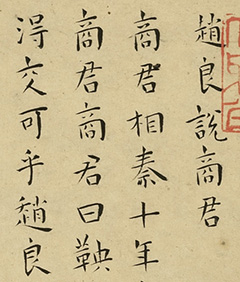 趙良説商君
商君相秦十年
商君商君曰鞅
得交可乎趙良